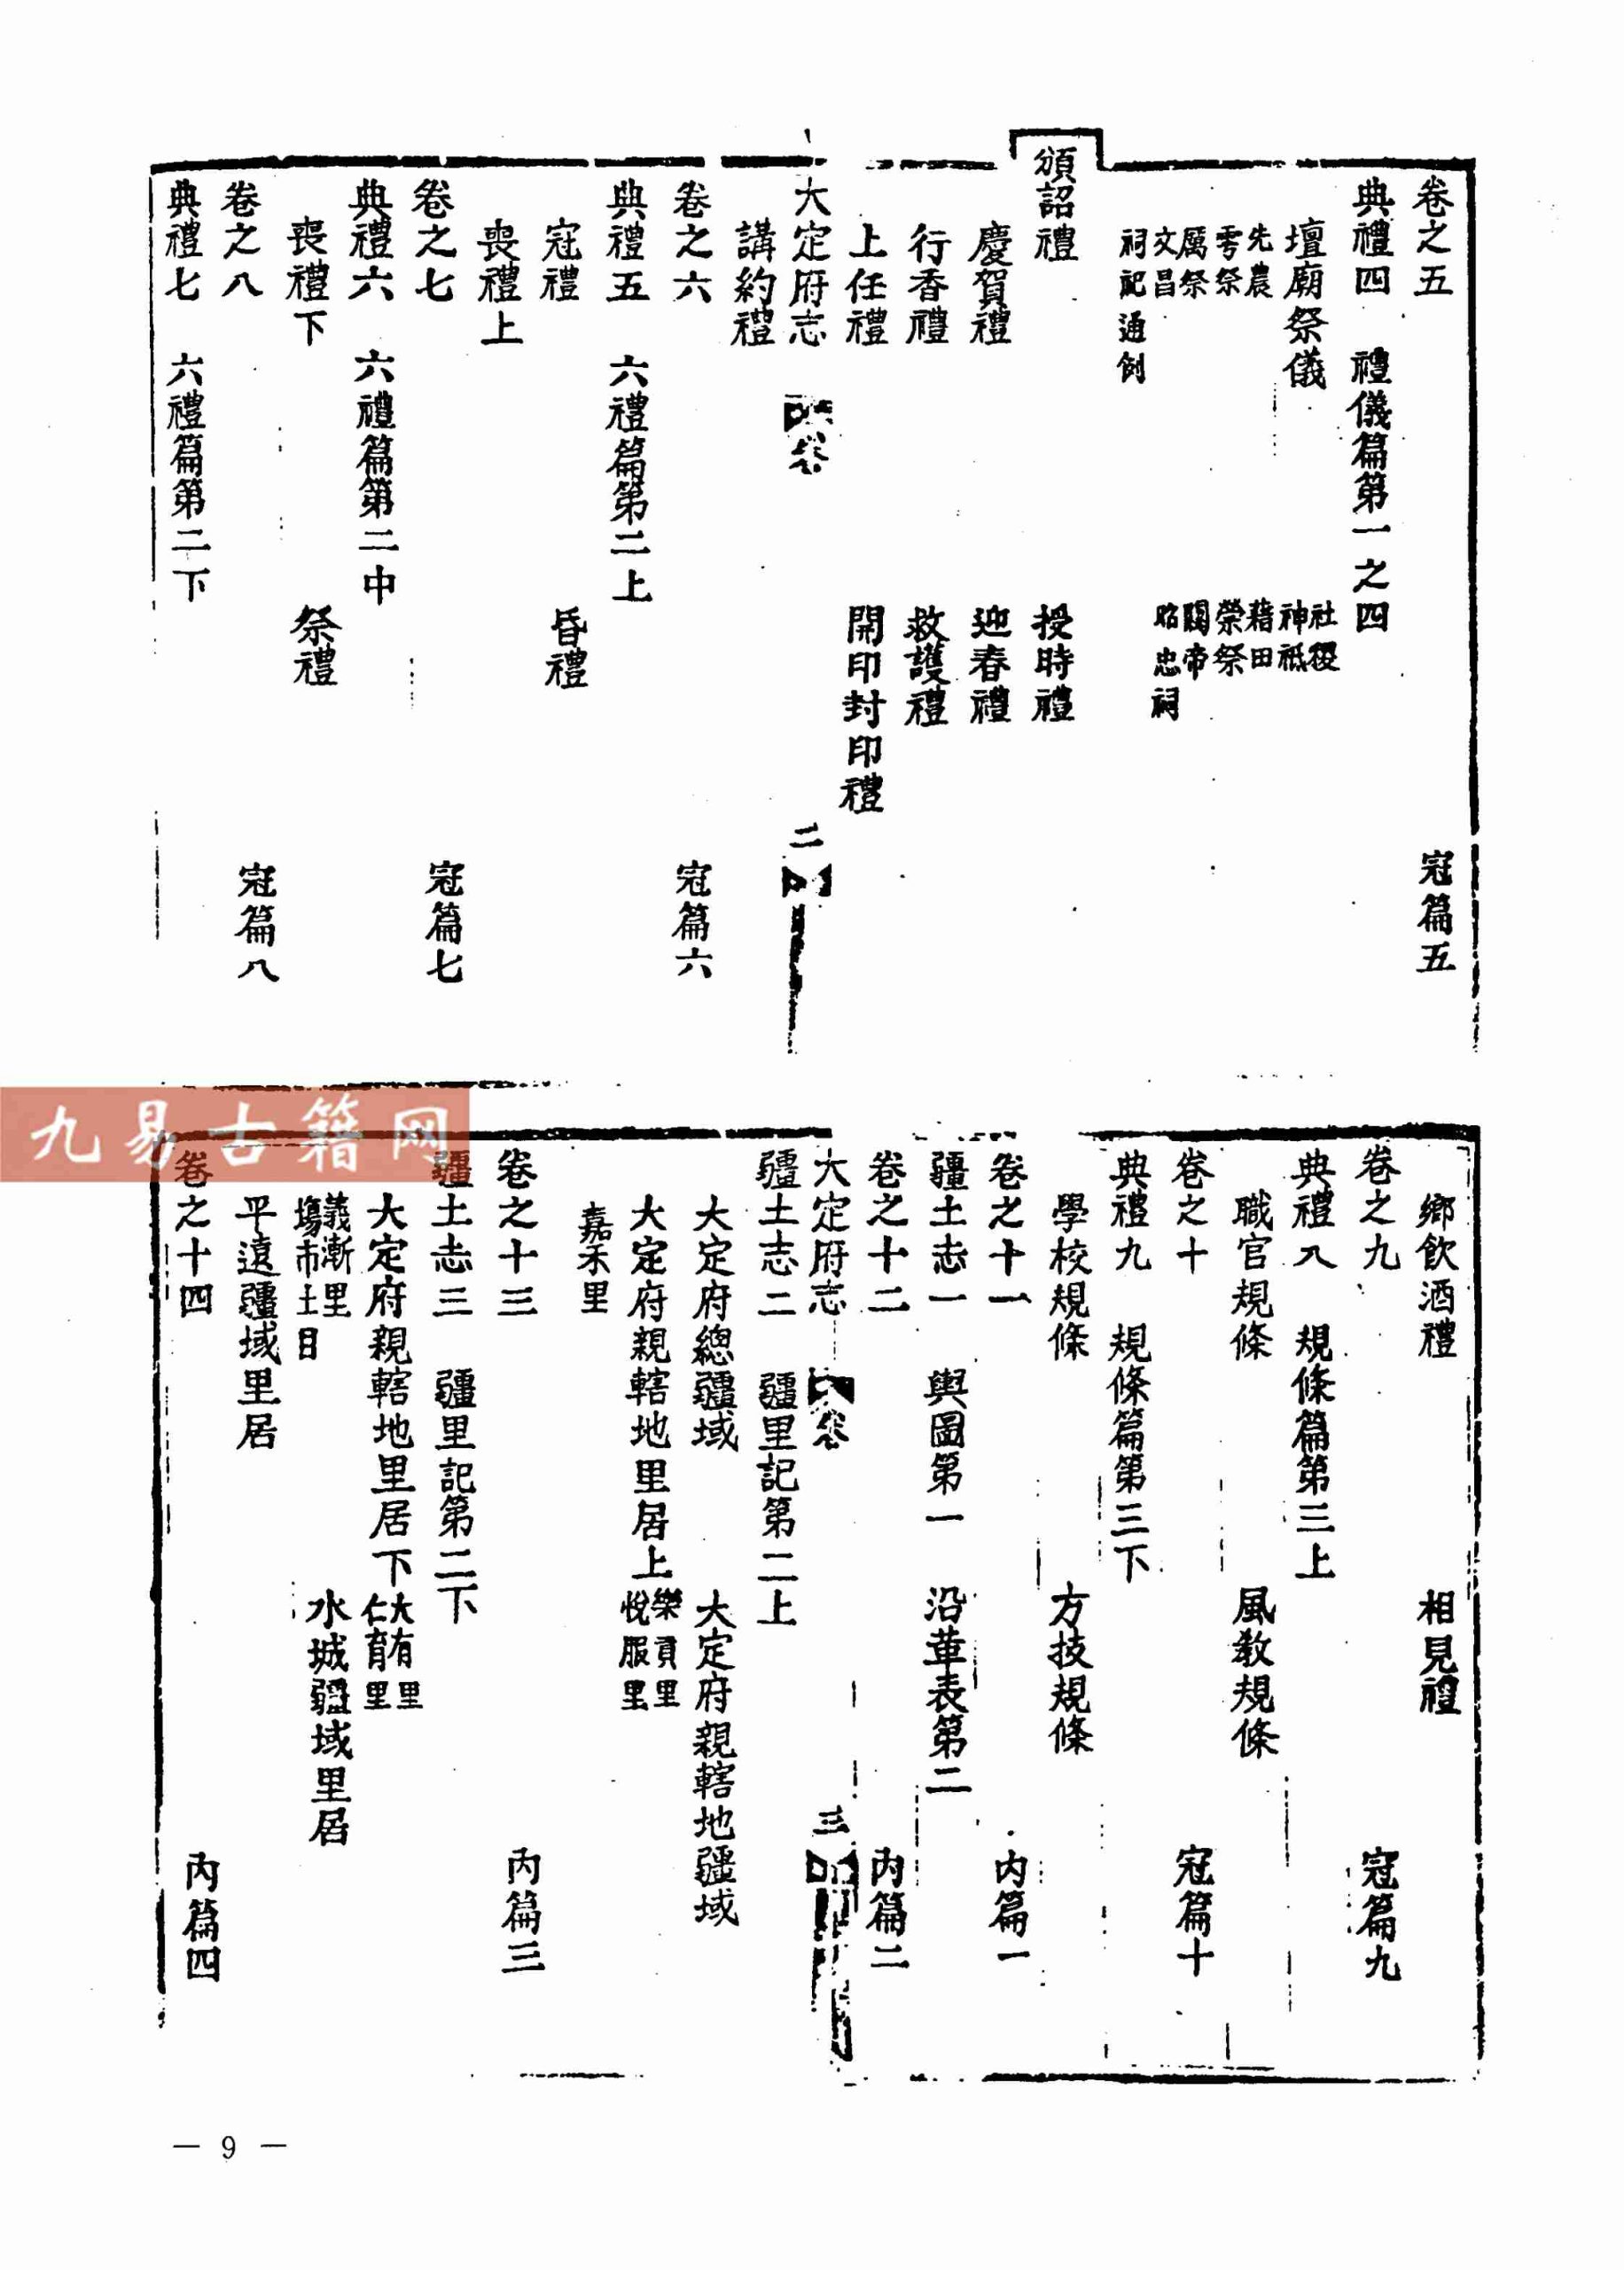 卷之五 冠篇五
典禮四 禮儀篇第一之四
壇廟祭儀
社稷
神祇
先農 藉田
雩祭 禜祭
厲祭 關帝
文昌 昭忠祠
祠記通例
頒詔禮 授時禮
慶賀禮 迎春禮
行香禮 救護禮
上任禮 開印封印禮
大定府志 卷 二
講約禮
卷之六 冠篇六
典禮五 六禮篇第二上
冠禮 昏禮
喪禮上
卷之七 冠篇七
典禮六 六禮篇第二中
喪禮下 祭禮
卷之八 冠篇八
典禮七 六禮篇第二下
鄉飲酒禮 相見禮
卷之九 冠篇九
典禮八 規條篇第三上
職官規條 風教規條
卷之十 冠篇十
典禮九 規條篇第三下
學校規條 方技規條
卷之十一 內篇一
疆土志一 輿圖第一 沿革表第二
卷之十二 內篇二
大定府志 卷 三
疆土志二 疆里記第二上
大定府總疆域 大定府親轄地疆域
大定府親轄地里居上 樂貢里
悅服里
嘉禾里
卷之十三 內篇三
疆土志三 疆里記第二下
大定府親轄地里居下 大有里
仁育里
義漸里
場市土目 水城疆域里居
平遠疆域里居
卷之十四 內篇四
九易古籍网
— 9 —